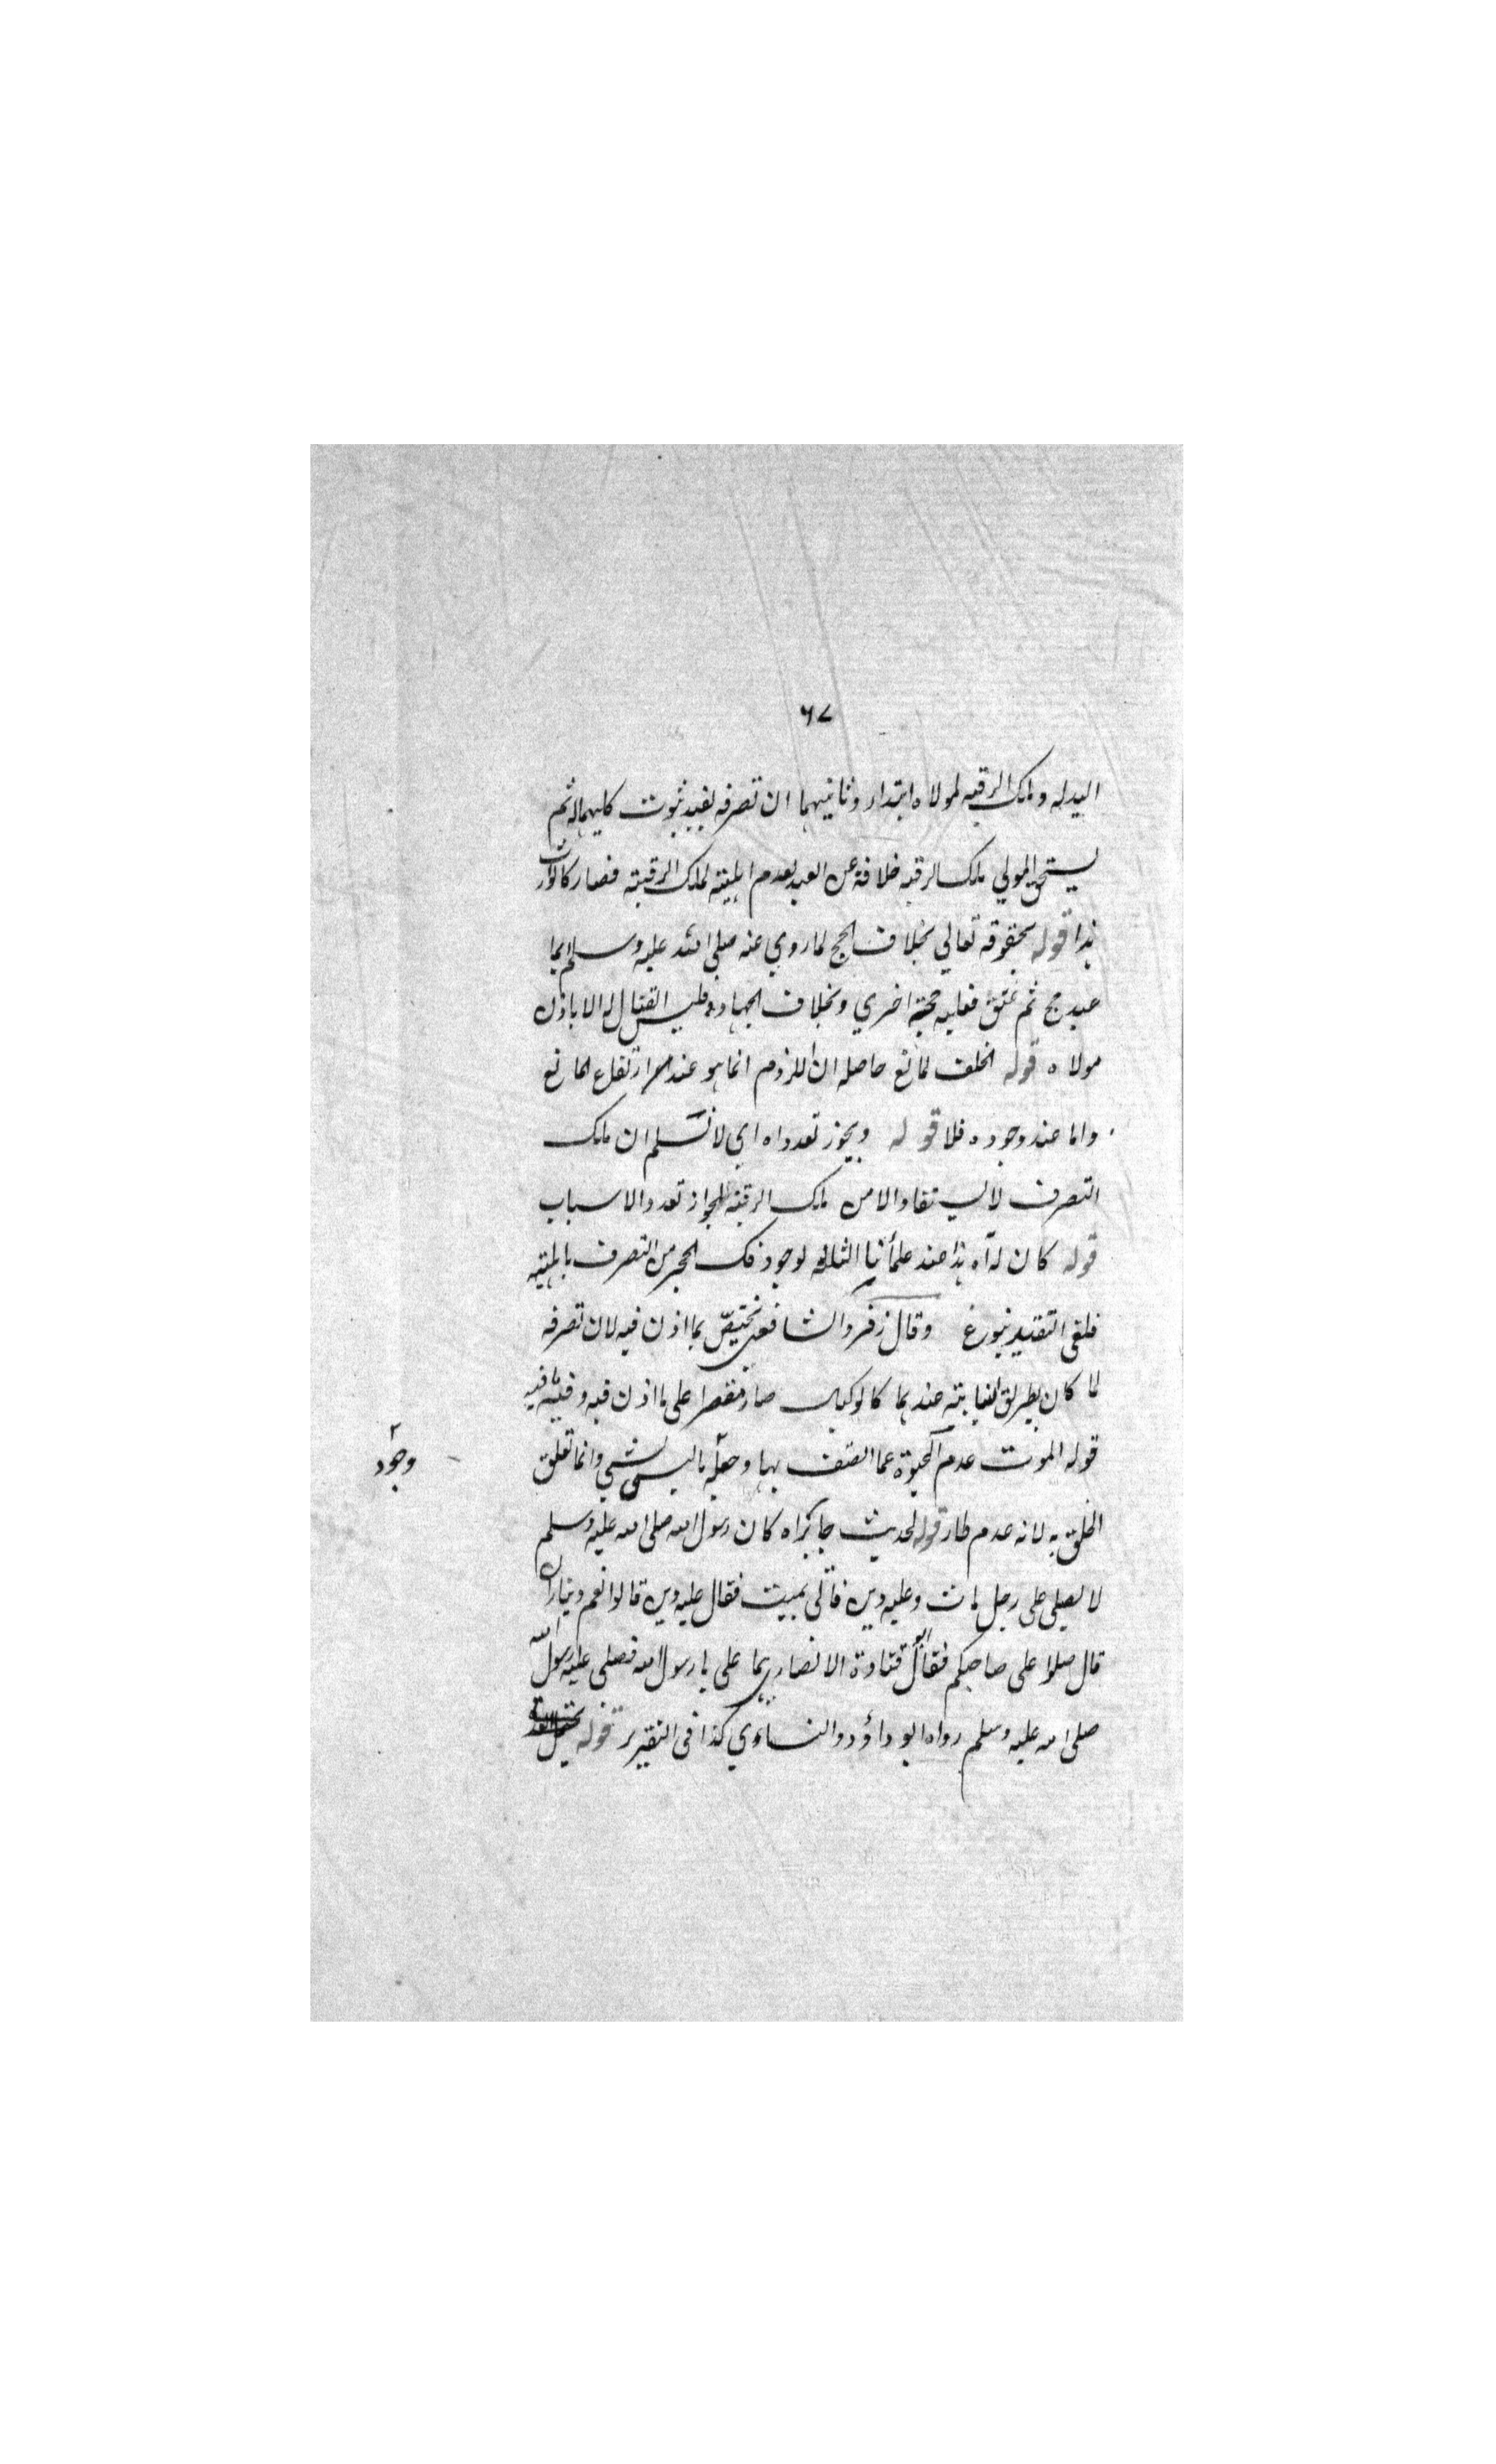 ٦٧
اليد له وملك الرقبه لمولاه ابتداء وثانيهما ان تصرفه يفيد ثبوت كليهما له ثم
يستحق المولي ملك الرقبه خلافة عن العبد لعدم اهليته لملك الرقبته فصار كالوارث
هذا قوله بحقوقه تعالي بخلاف الحج لما روي عنه صلى الله عليه وسلم ايما
عبد حج ثم عتق فعليه حجة اخري وبخلاف الجهاد فليس القتال له الا باذن
مولاه قوله الخلف لمانع حاصله ان اللزوم انما هو عند ارتفاع المانع
واما عند وجوده فلا قوله ويجوز تعدد اه اي لا نسلم ان ملك
التصرف لا يستفاد الا من ملك الرقبة لجواز تعدد الاسباب
قوله كان له اه هذا عند علمأنا الثلثه لوجود فك الحجر من التصرف باهليته
فلغى التقييد بنوع وقال زفر والشافعي يختص بما اذن فيه لان تصرفه
لما كان بطريق النيابته عندهما كالوكيل صار مقتصرا على ما اذن فيه وفيه ما فيه
قوله الموت عدم الحيوة عما اتصف بها وجعله ما ليس بشي وانما تعلق
وجود
الخلق به لانه عدم طار قوله لحديث جابر اه كان رسول الله صلى الله عليه وسلم
لا يصلي على رجل مات وعليه دين فأتى بميت فقال عليه دين قالوا نعم ديناران
قال صلوا على صاحبكم فقال ابو قتادة الانصاري هما على يا رسول الله فصلى عليه رسول الله
صلى الله عليه وسلم رواه ابو داؤد والنساءي كذا في التقرير قوله